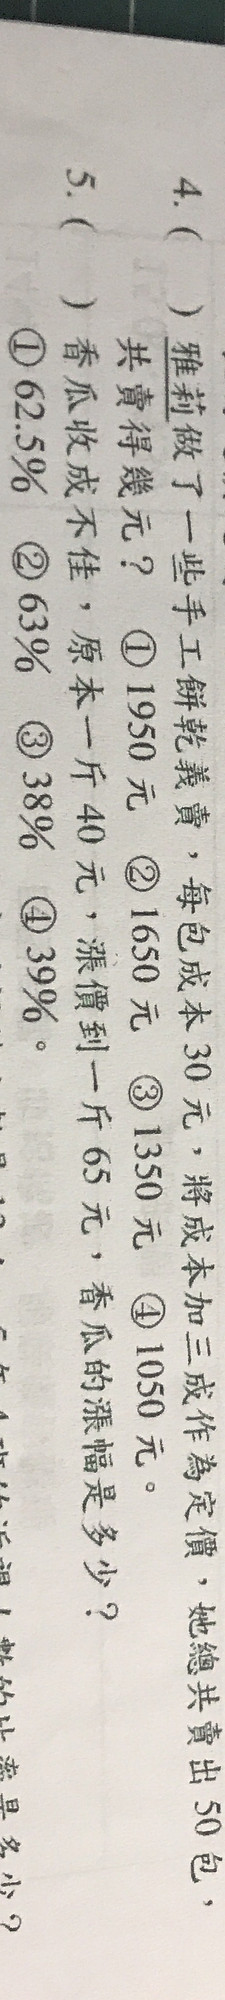 4. (　) 雅莉做了一些手工餅乾義賣，每包成本 30 元，將成本加三成作為定價，她總共賣出 50 包，
共賣得幾元？ ① 1950 元 ② 1650 元 ③ 1350 元 ④ 1050 元。
5. (　) 香瓜收成不佳，原本一斤 40 元，漲價到一斤 65 元，香瓜的漲幅是多少？
① 62.5% ② 63% ③ 38% ④ 39%。